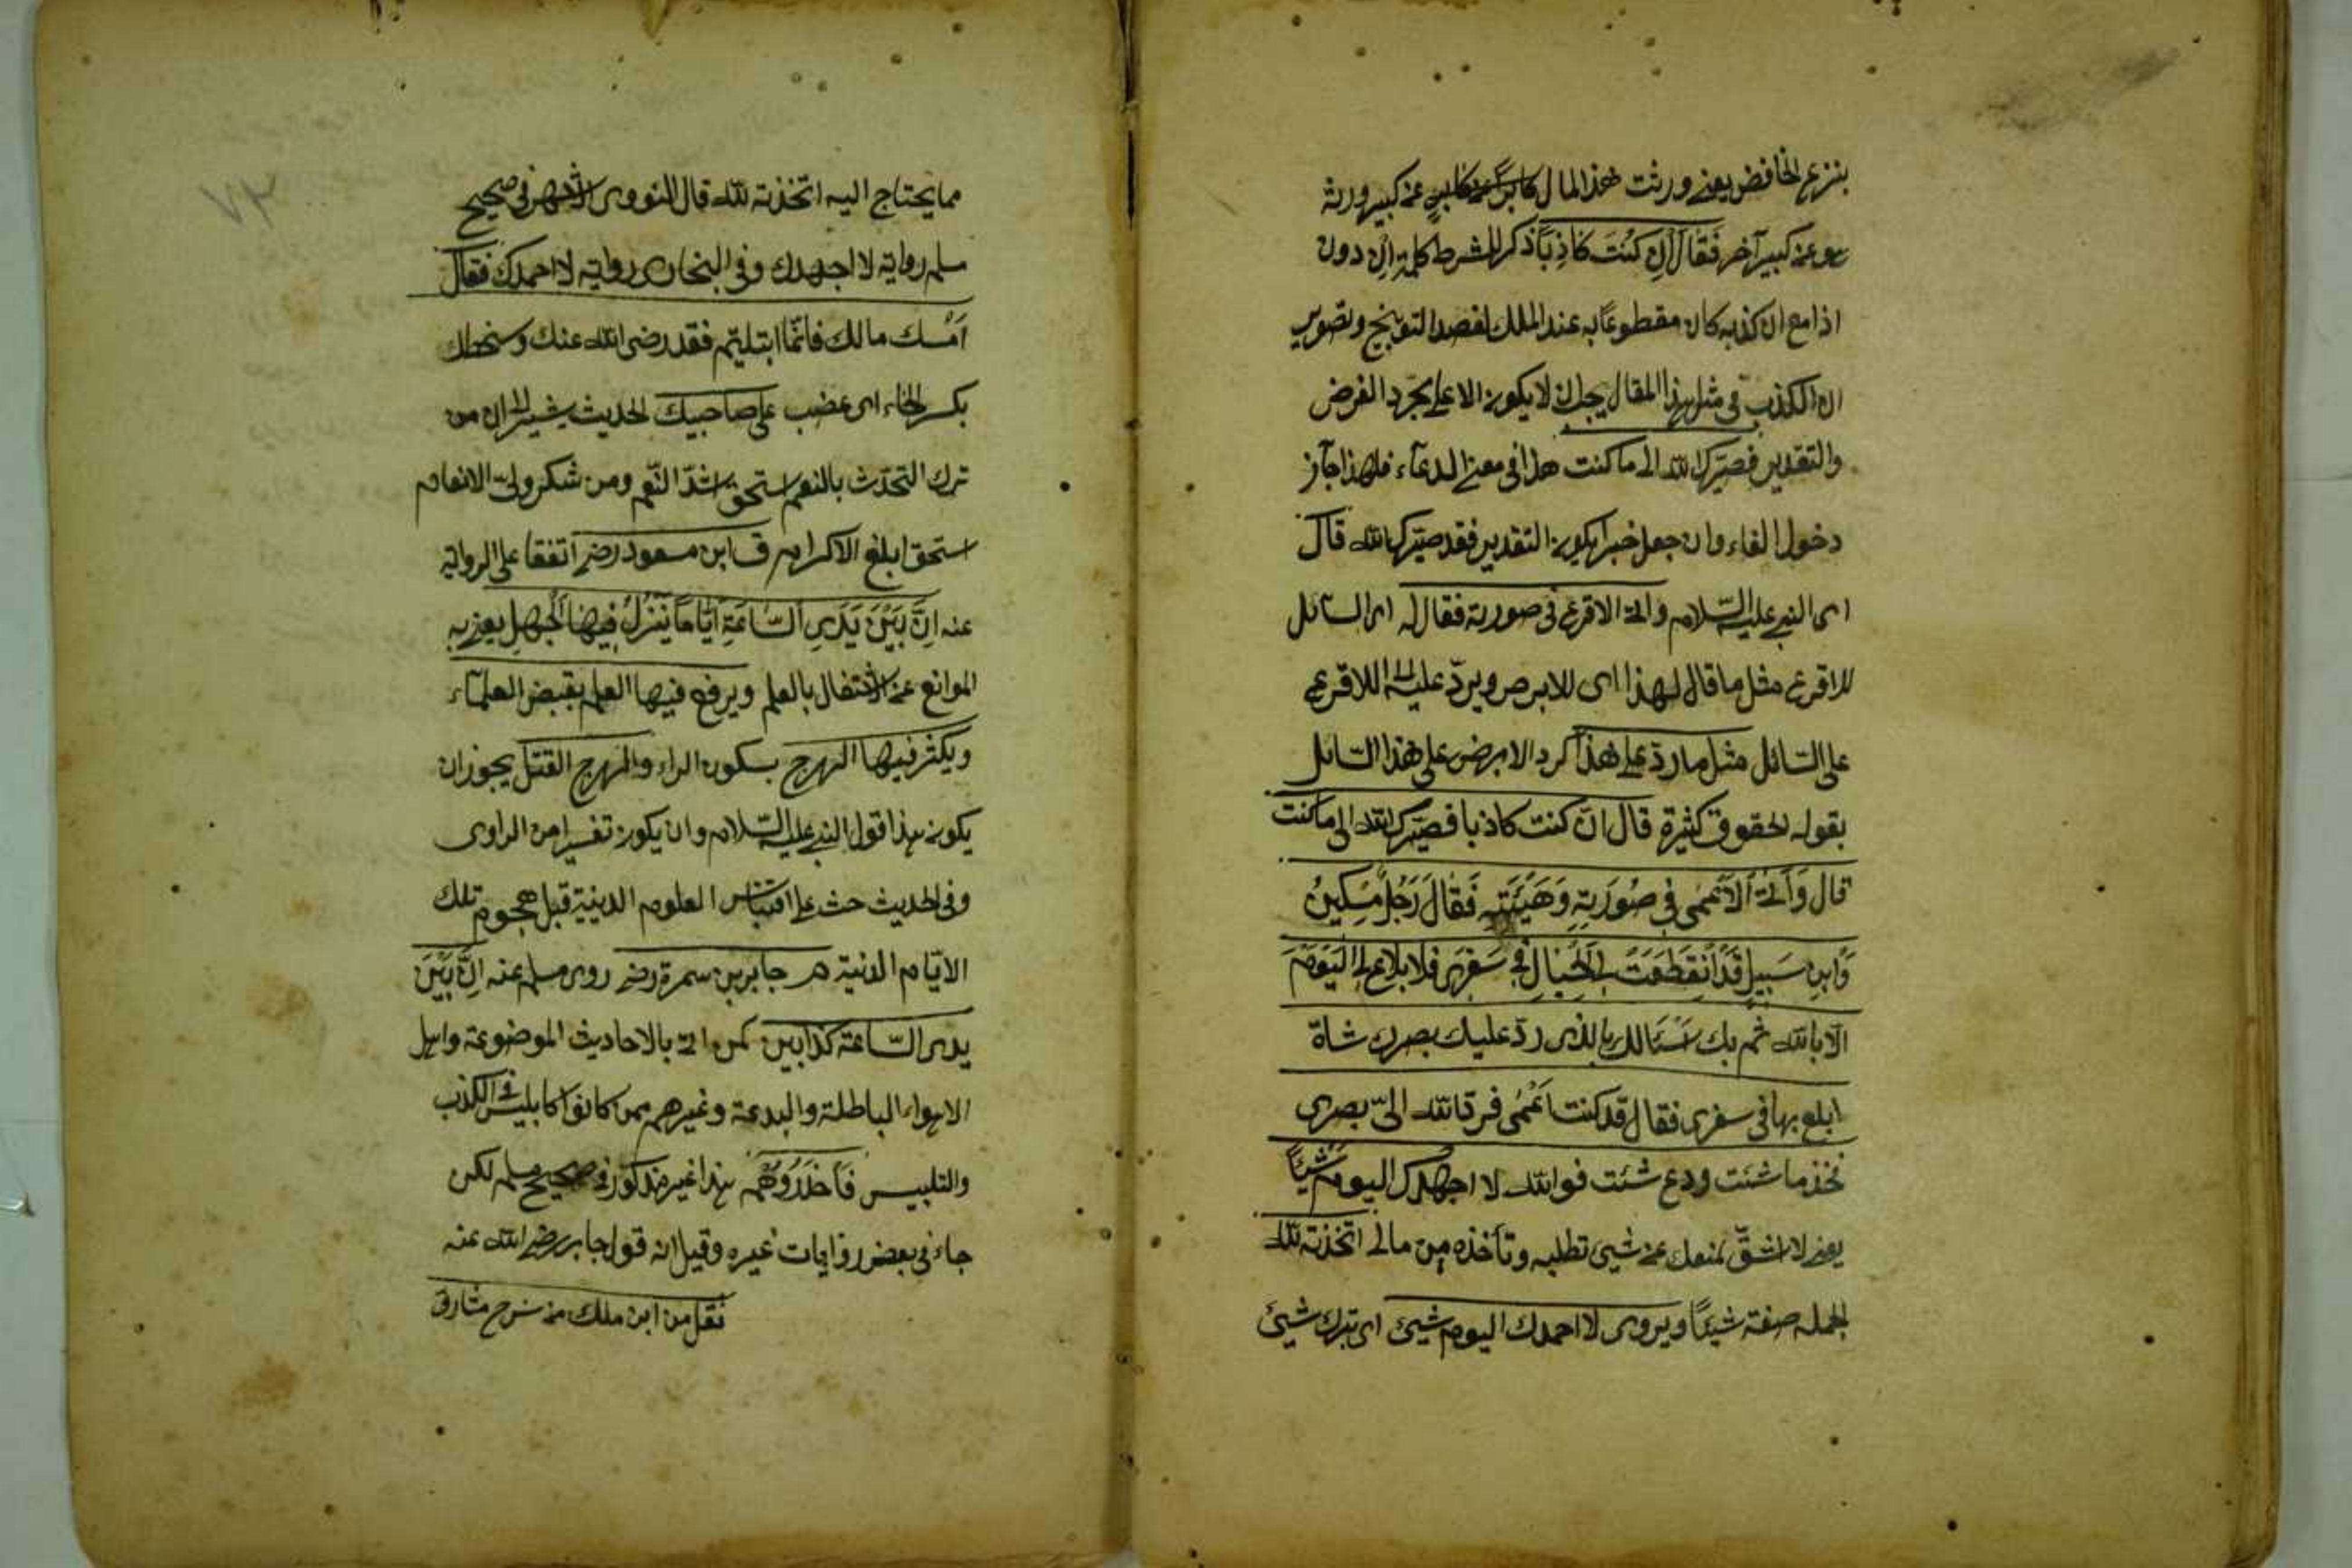 بنزع الخافض يعني ورثت هذا المال كابرا عن كابر عن كبير ورثه
هو عن كبير آخر فَقَالَ اِنْ كُنْتَ كَاذِبًا ذكر للشرط كلمة ان دون
اذا مع ان كذبه كان مقطوعًا به عند الملك لقصد التوبيخ وتصوير
ان الكذب في مثل هذا المقال يجب ان لا يكون الا على مجرد الفرض
والتقدير فصيّرك الله الى ما كنت هذا في معنى الدعآء فلهذا جآز
دخول الفاء وان جعل خبرا يكون التقدير فقد صيّرك الله قال
اى النبي عليه السّلام واتى الاقرع في صورته فقال له اى السائل
للاقرع مثل ما قال لهذا اى للابرص ويردّ عليه اى الاقرع
على السّائل مثل ما ردّ على هذا كرد الابرص على هذا السّائل
بقوله الحقوق كثيرة قال ان كنت كاذبا فصيّرك الله الى ما كنت
قال وَاَتَى الْاَعْمٰى فِي صُورَتِهِ وَهَيْئَتِهِ فَقَالَ رَجُلٌ مِسْكِينٌ
وَابْنِ سَبِيلٍ قَدْ اِنْقَطَعَتْ بِىَ الْحِبَالُ فِى سَفَرِى فلا بلاغ لى الْيَوْمَ
الّا بالله ثم بك اَسْئَالك بالذى ردّ عليك بصرك شاة
ابلغ بها في سفرى فقال قد كنت اَعْمٰى فردّ الله الىّ بصرى
فخذ ما شئت ودع شئت فوالله لا اجهدك اليوم شَيْئًا
يعني لا اشقّ لمنعك عن شئ تطلبه وتأخذه من مالى اتخذته لله
الجملة صفة شيئًا ويروى لا احمدك اليوم شيئ اى بترك شيئ
مما يحتاج اليه اتخذته لله قال النووى الاشهر في صحيح
مسلم رواية لا اجهدك وفى البخارى رواية لا احمدك فقال
اَمْسك مالك فانّما ابتليتم فقد رضى الله عنك وسخط
بكسر الخاء اى غضب على صاحبيك الحديث يشير الى ان من
ترك التحدّث بالنعم استحق اشدّ النّقم ومن شكر ولىّ الانعام
استحق ابلغ الاكرام ق ابن مسعود رضى اتفقا على الرواية
عنه اِنَّ بَيْنَ يَدَىِ السَّاعَةِ اَيَّامًا يَنْزِلُ فِيهَا الْجَهْلُ يعني به
الموانع عن الاشتغال بالعلم ويرفع فيها العلم بقبض العلمآء
ويكثر فيها الهرج بسكون الراء والهرج القتل يجوز ان
يكون هذا قول النبي عليه السّلام وان يكون تفسيرا من الراوى
وفى الحديث حث على اقتباس العلوم الدينية قبل هجوم تلك
الايّام الدنية م جابر بن سمرة رضى روى مسلم عنه اِنَّ بَيْنَ
يدى السّاعة كذابين كمن اتى بالاحاديث الموضوعة واهل
الاهواء الباطلة والبدعة وغيرهم ممن كانوا كابليس فى الكذب
والتلبيس فَاحْذَرُوهُمْ هذا غير مذكور فى صحيح مسلم لكن
جاء فى بعض روايات غيره وقيل انه قول جابر رضى الله عنه
نقل من ابن ملك من شرح مشارق